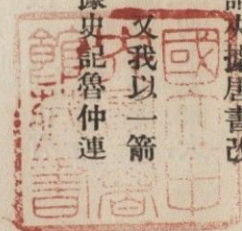 史據唐書改
又我以一箭
史記魯仲連
國立中
央圖書
館藏書